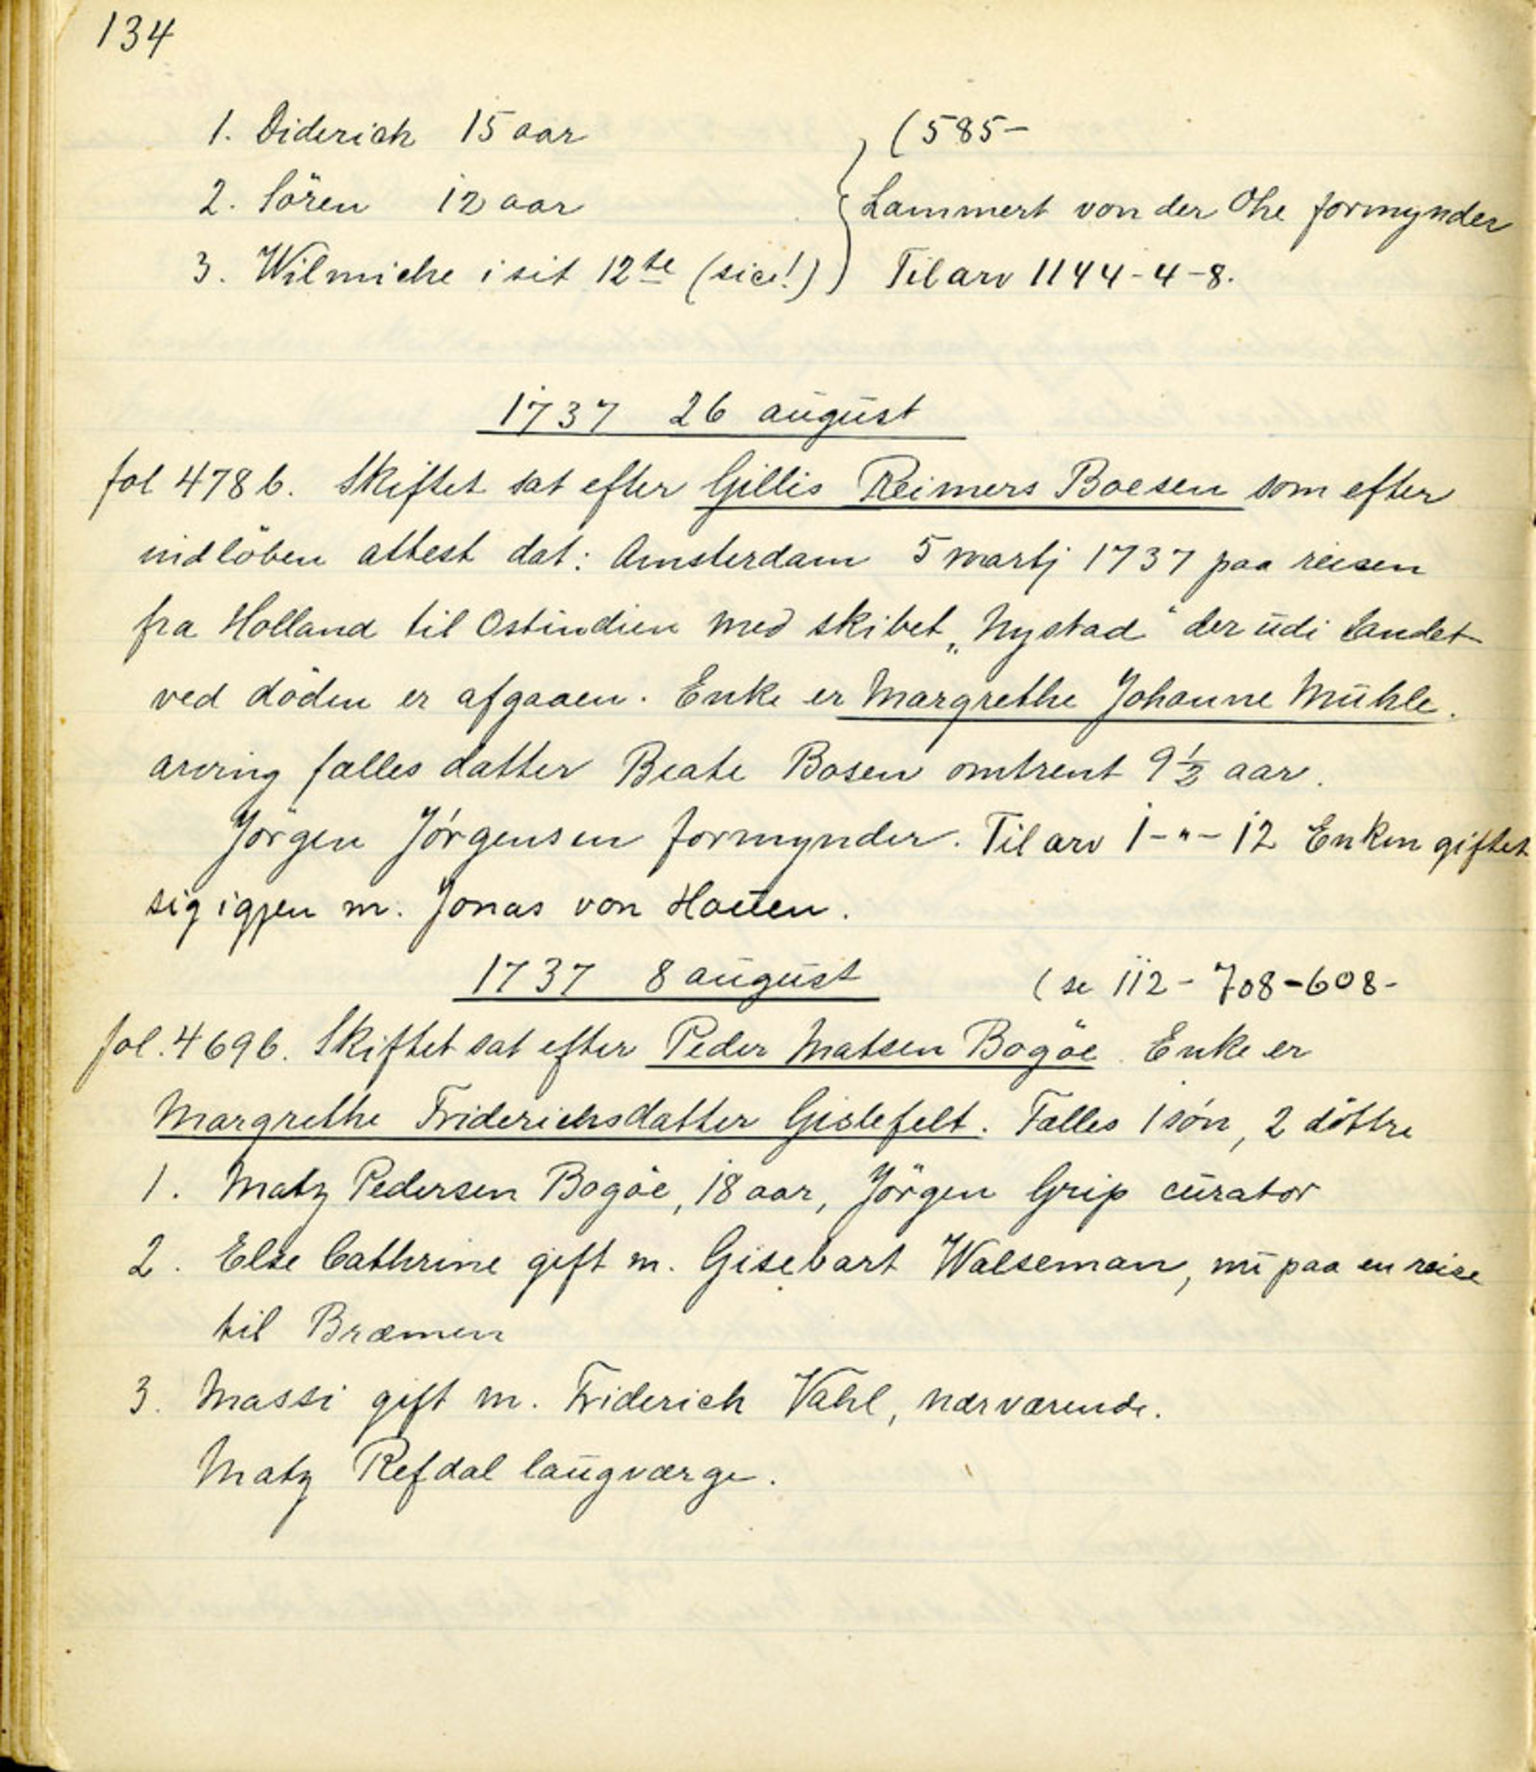 134
1. Diderich 15 aar (585-
2. Sören 12 aar Lammert von der Ohe formynder
3. Wilmiche i sit 12te (sic!) Til arv 1144-4-8.
1737 26 august
fol 478 b. Skiftet sat efter Gillis Reimers Boesen som efter
indlöben attest dat: Amsterdam 5 martj 1737 paa reisen
fra Holland til Ostindien med skibet „Nystad“ der udi landet
ved döden er afgaaen. Enke er Margrethe Johanne Mühle.
arving fælles datter Beate Bosen omtrent 9½ aar.
Jörgen Jörgensen formynder. Til arv 1-"-12 Enken giftet
sig igjen m. Jonas von Houten.
1737 8 august (se 112-708-608-
fol. 469 b. Skiftet sat efter Peder Matsen Bogöe. Enke er
Margrethe Friderichsdatter Gislefelt. Fælles 1 sön, 2 döttre
1. Matz Pedersen Bogöe, 18 aar, Jörgen Grip curator
2. Else Cathrine gift m. Gisebart Walseman, nu paa en reise
til Bræmen
3. Massi gift m. Friderich Vahl, nærværende.
Matz Refdal laugværge.